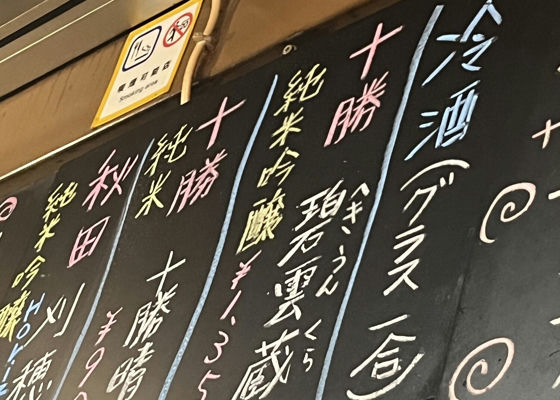 冷酒(グラス一合)
十勝
純米吟醸
碧雲蔵
へきうん
くら
¥1,35
十勝
純米
十勝晴
秋田
純米吟醸
刈穂
¥9
喫煙可能店
Smoking area